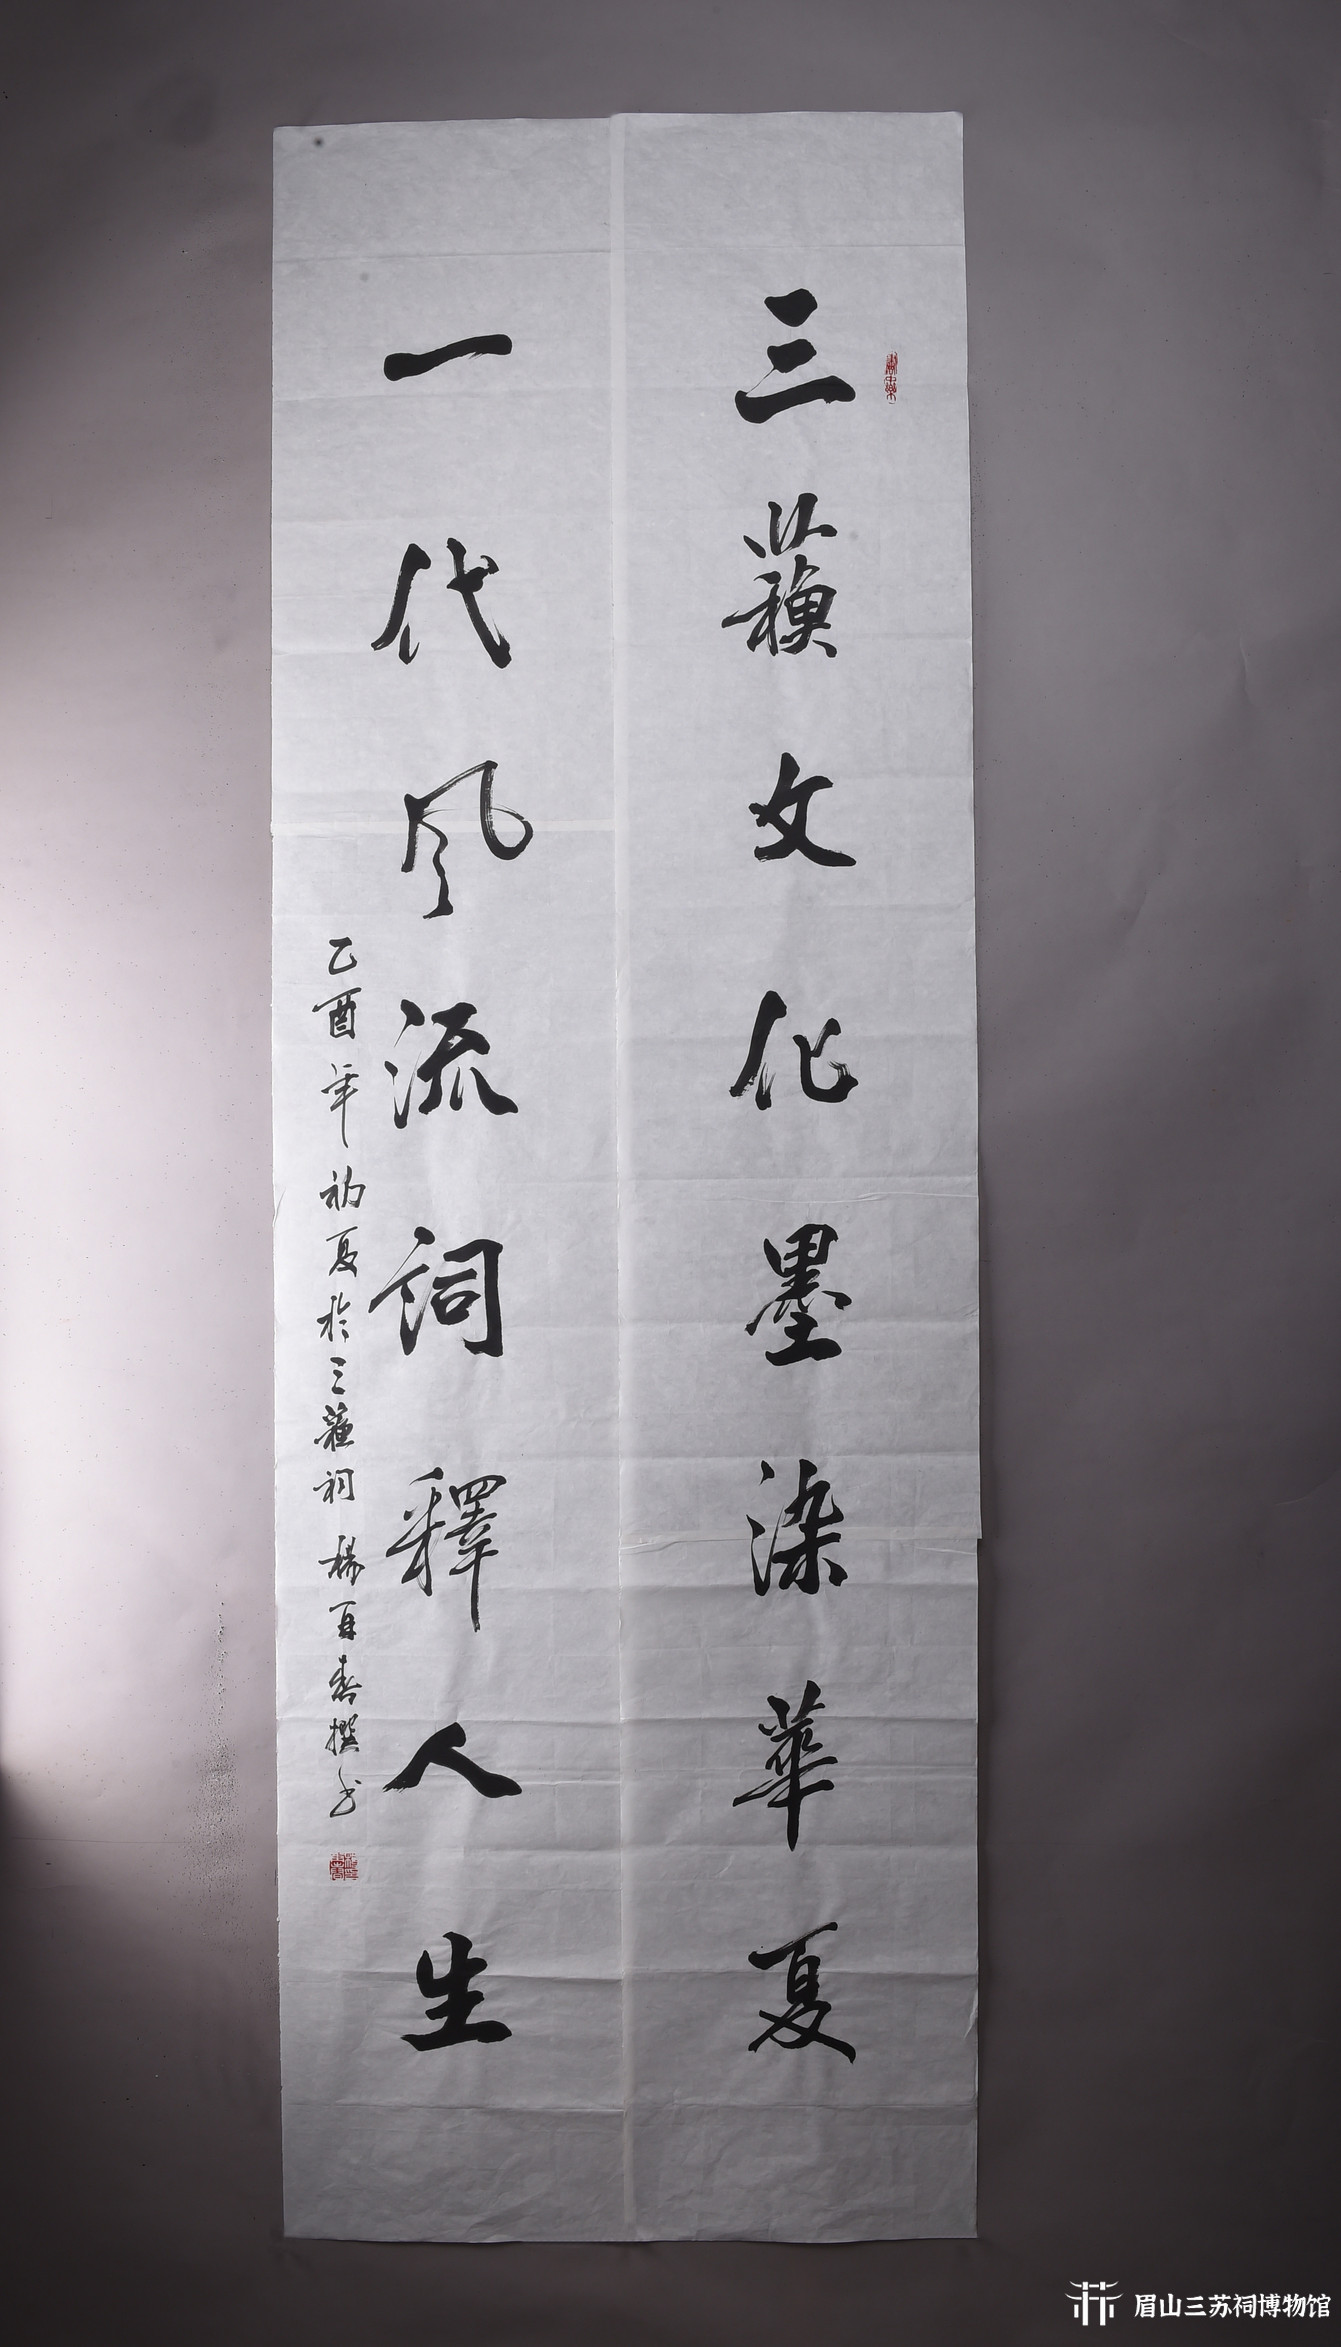 三蘇文化墨染華夏
一代风流詞釋人生
乙酉年初夏於三蘇祠 楊百春撰书
眉山三苏祠博物馆